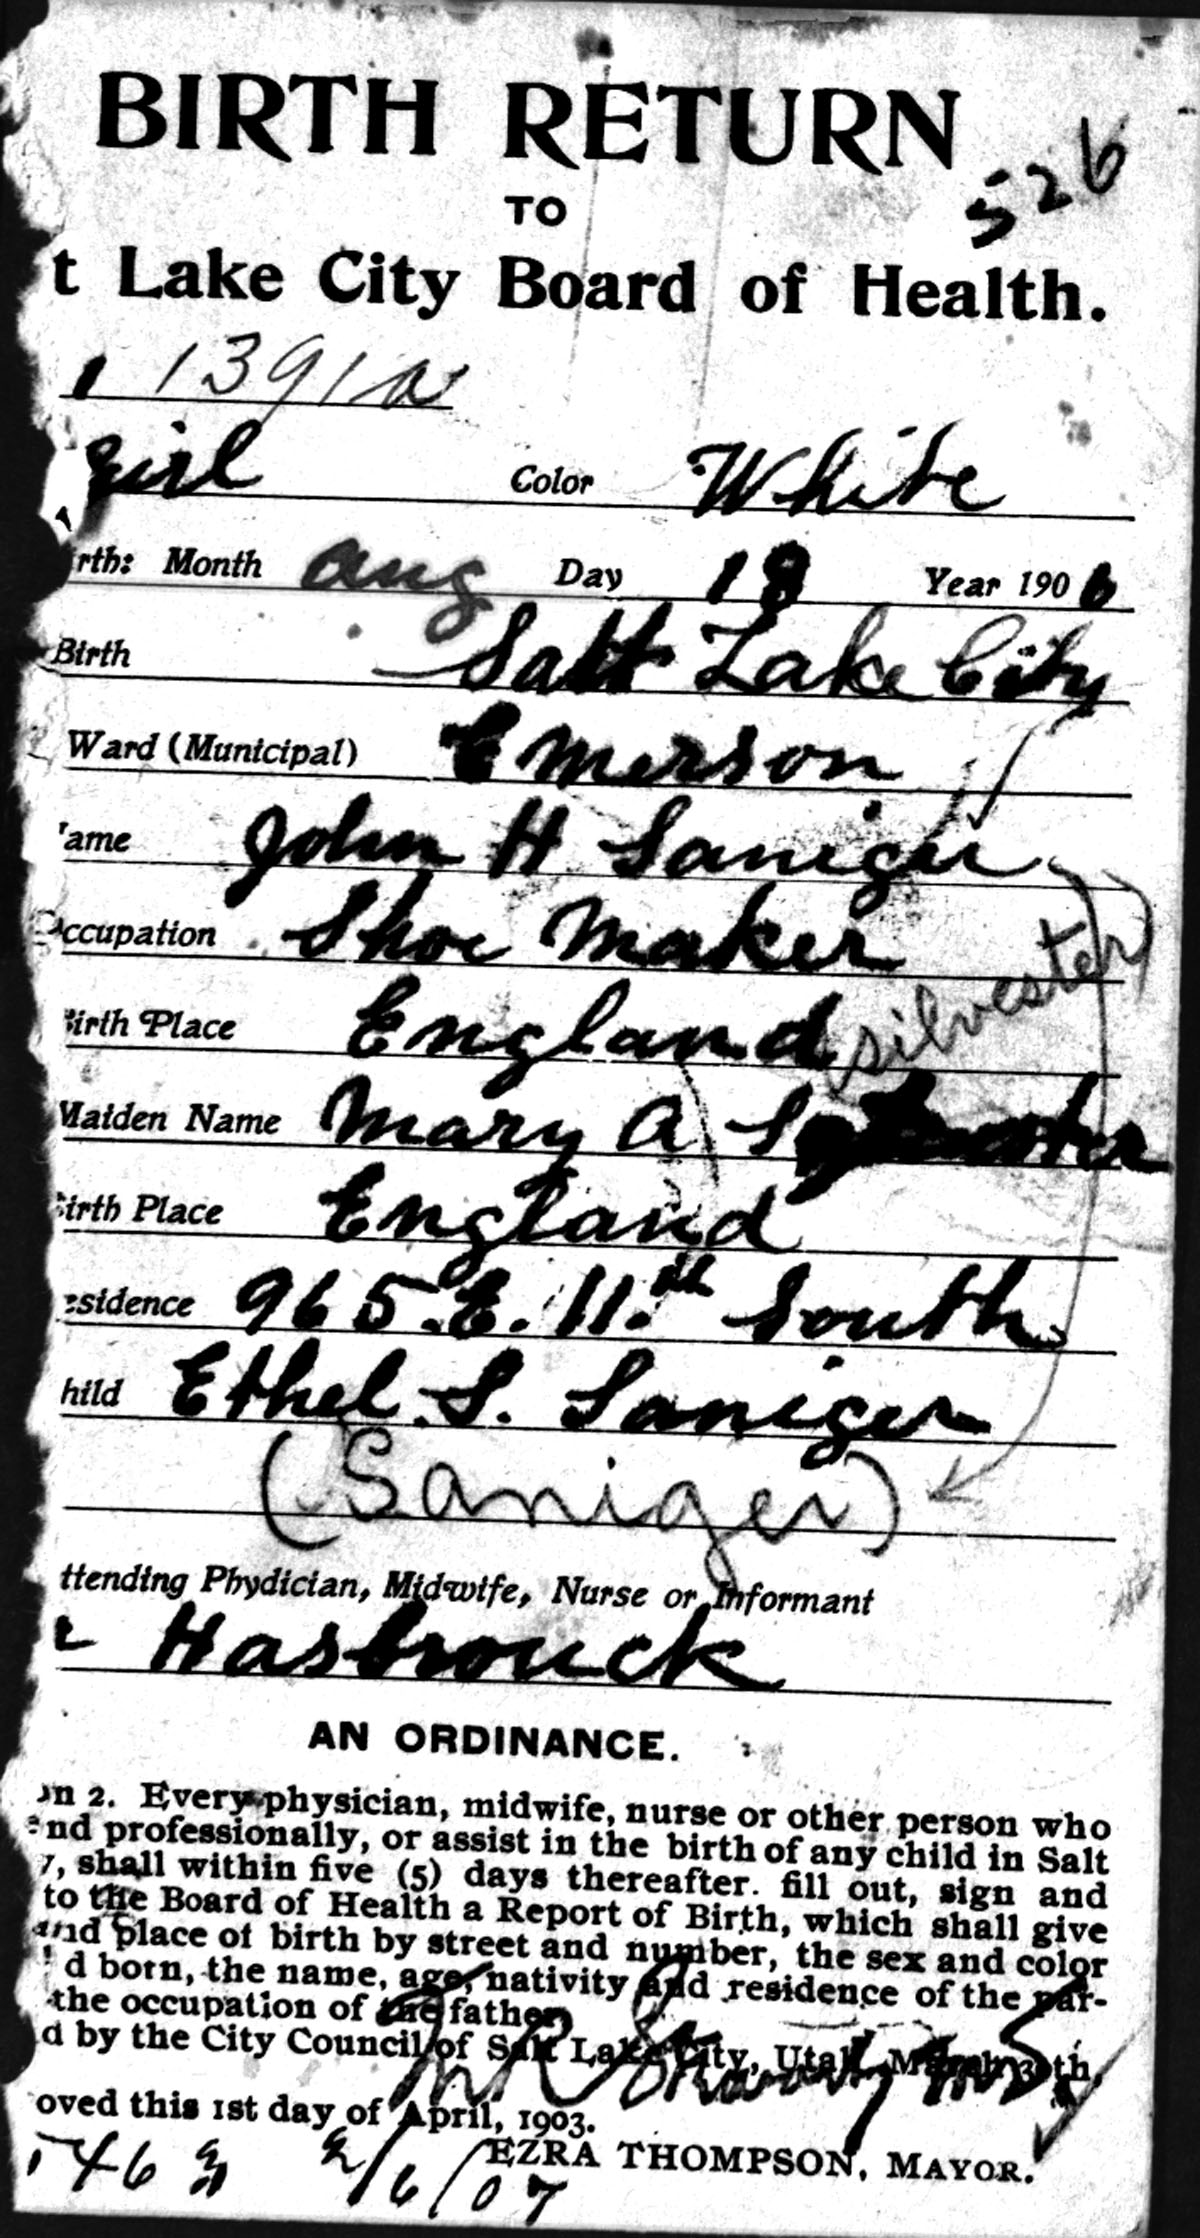 BIRTH RETURN
526
TO
t Lake City Board of Health.
1391a
girl Color White
irth: Month aug Day 18 Year 1906
Birth Salt Lake City
Ward (Municipal) Emerson
ame John H Saniger
ccupation Shoe Maker
(silvester)
Birth Place England
Maiden Name Mary A
Birth Place England
esidence 965.E. 11.th South
hild Ethel. S. Saniger
(Saniger)
ttending Phydician, Midwife, Nurse or Informant
Hasbrouck
AN ORDINANCE.
on 2. Every physician, midwife, nurse or other person who
end professionally, or assist in the birth of any child in Salt
y, shall within five (5) days thereafter. fill out, sign and
to the Board of Health a Report of Birth, which shall give
and place of birth by street and number, the sex and color
d born, the name, age, nativity and residence of the par-
the occupation of the father
d by the City Council of Salt Lake City, Utah, March 30th,
oved this 1st day of April, 1903.
EZRA THOMPSON, MAYOR.
2/6/07